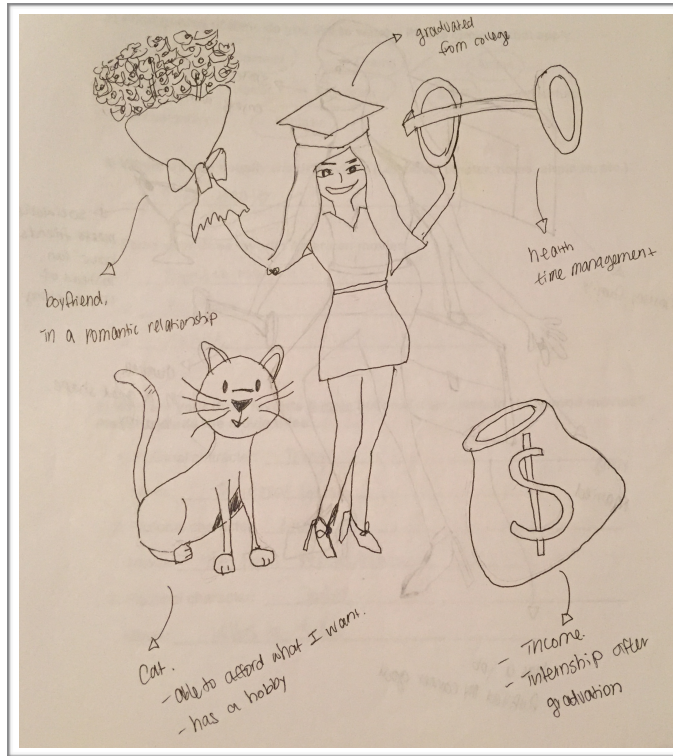 graduated
from college
health
time management
boyfriend,
in a romantic relationship
$
Cat.
- able to afford what I want.
- has a hobby
- Income.
- internship after
graduation